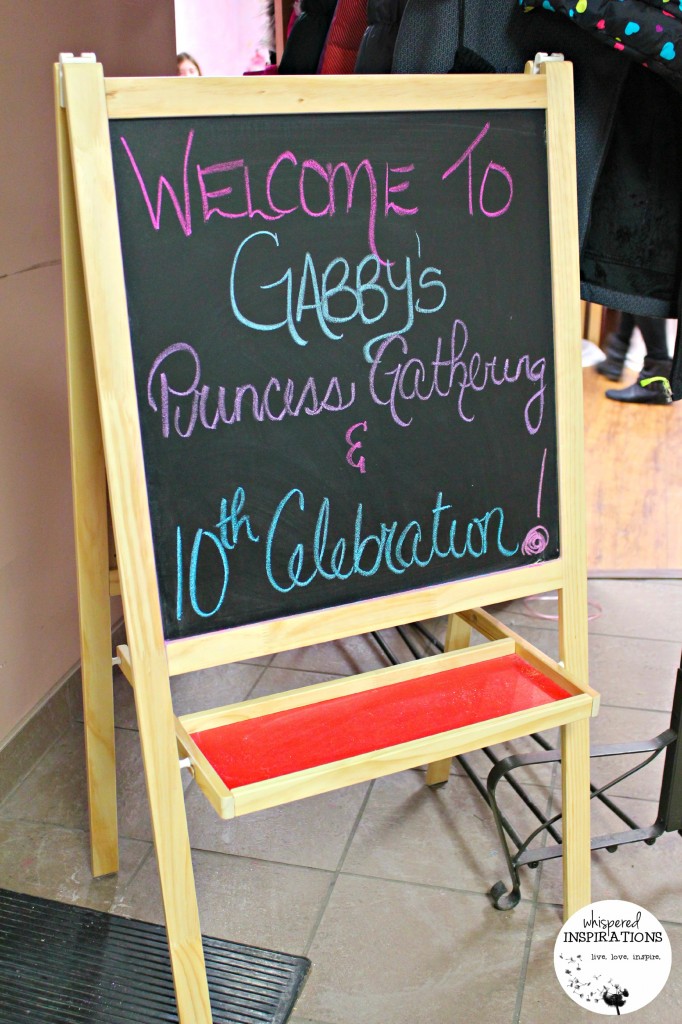 WELCOME TO
GABBY'S
Princess Gathering
&
10th Celebration!
whispered
INSPIRATIONS
live. love. inspire.